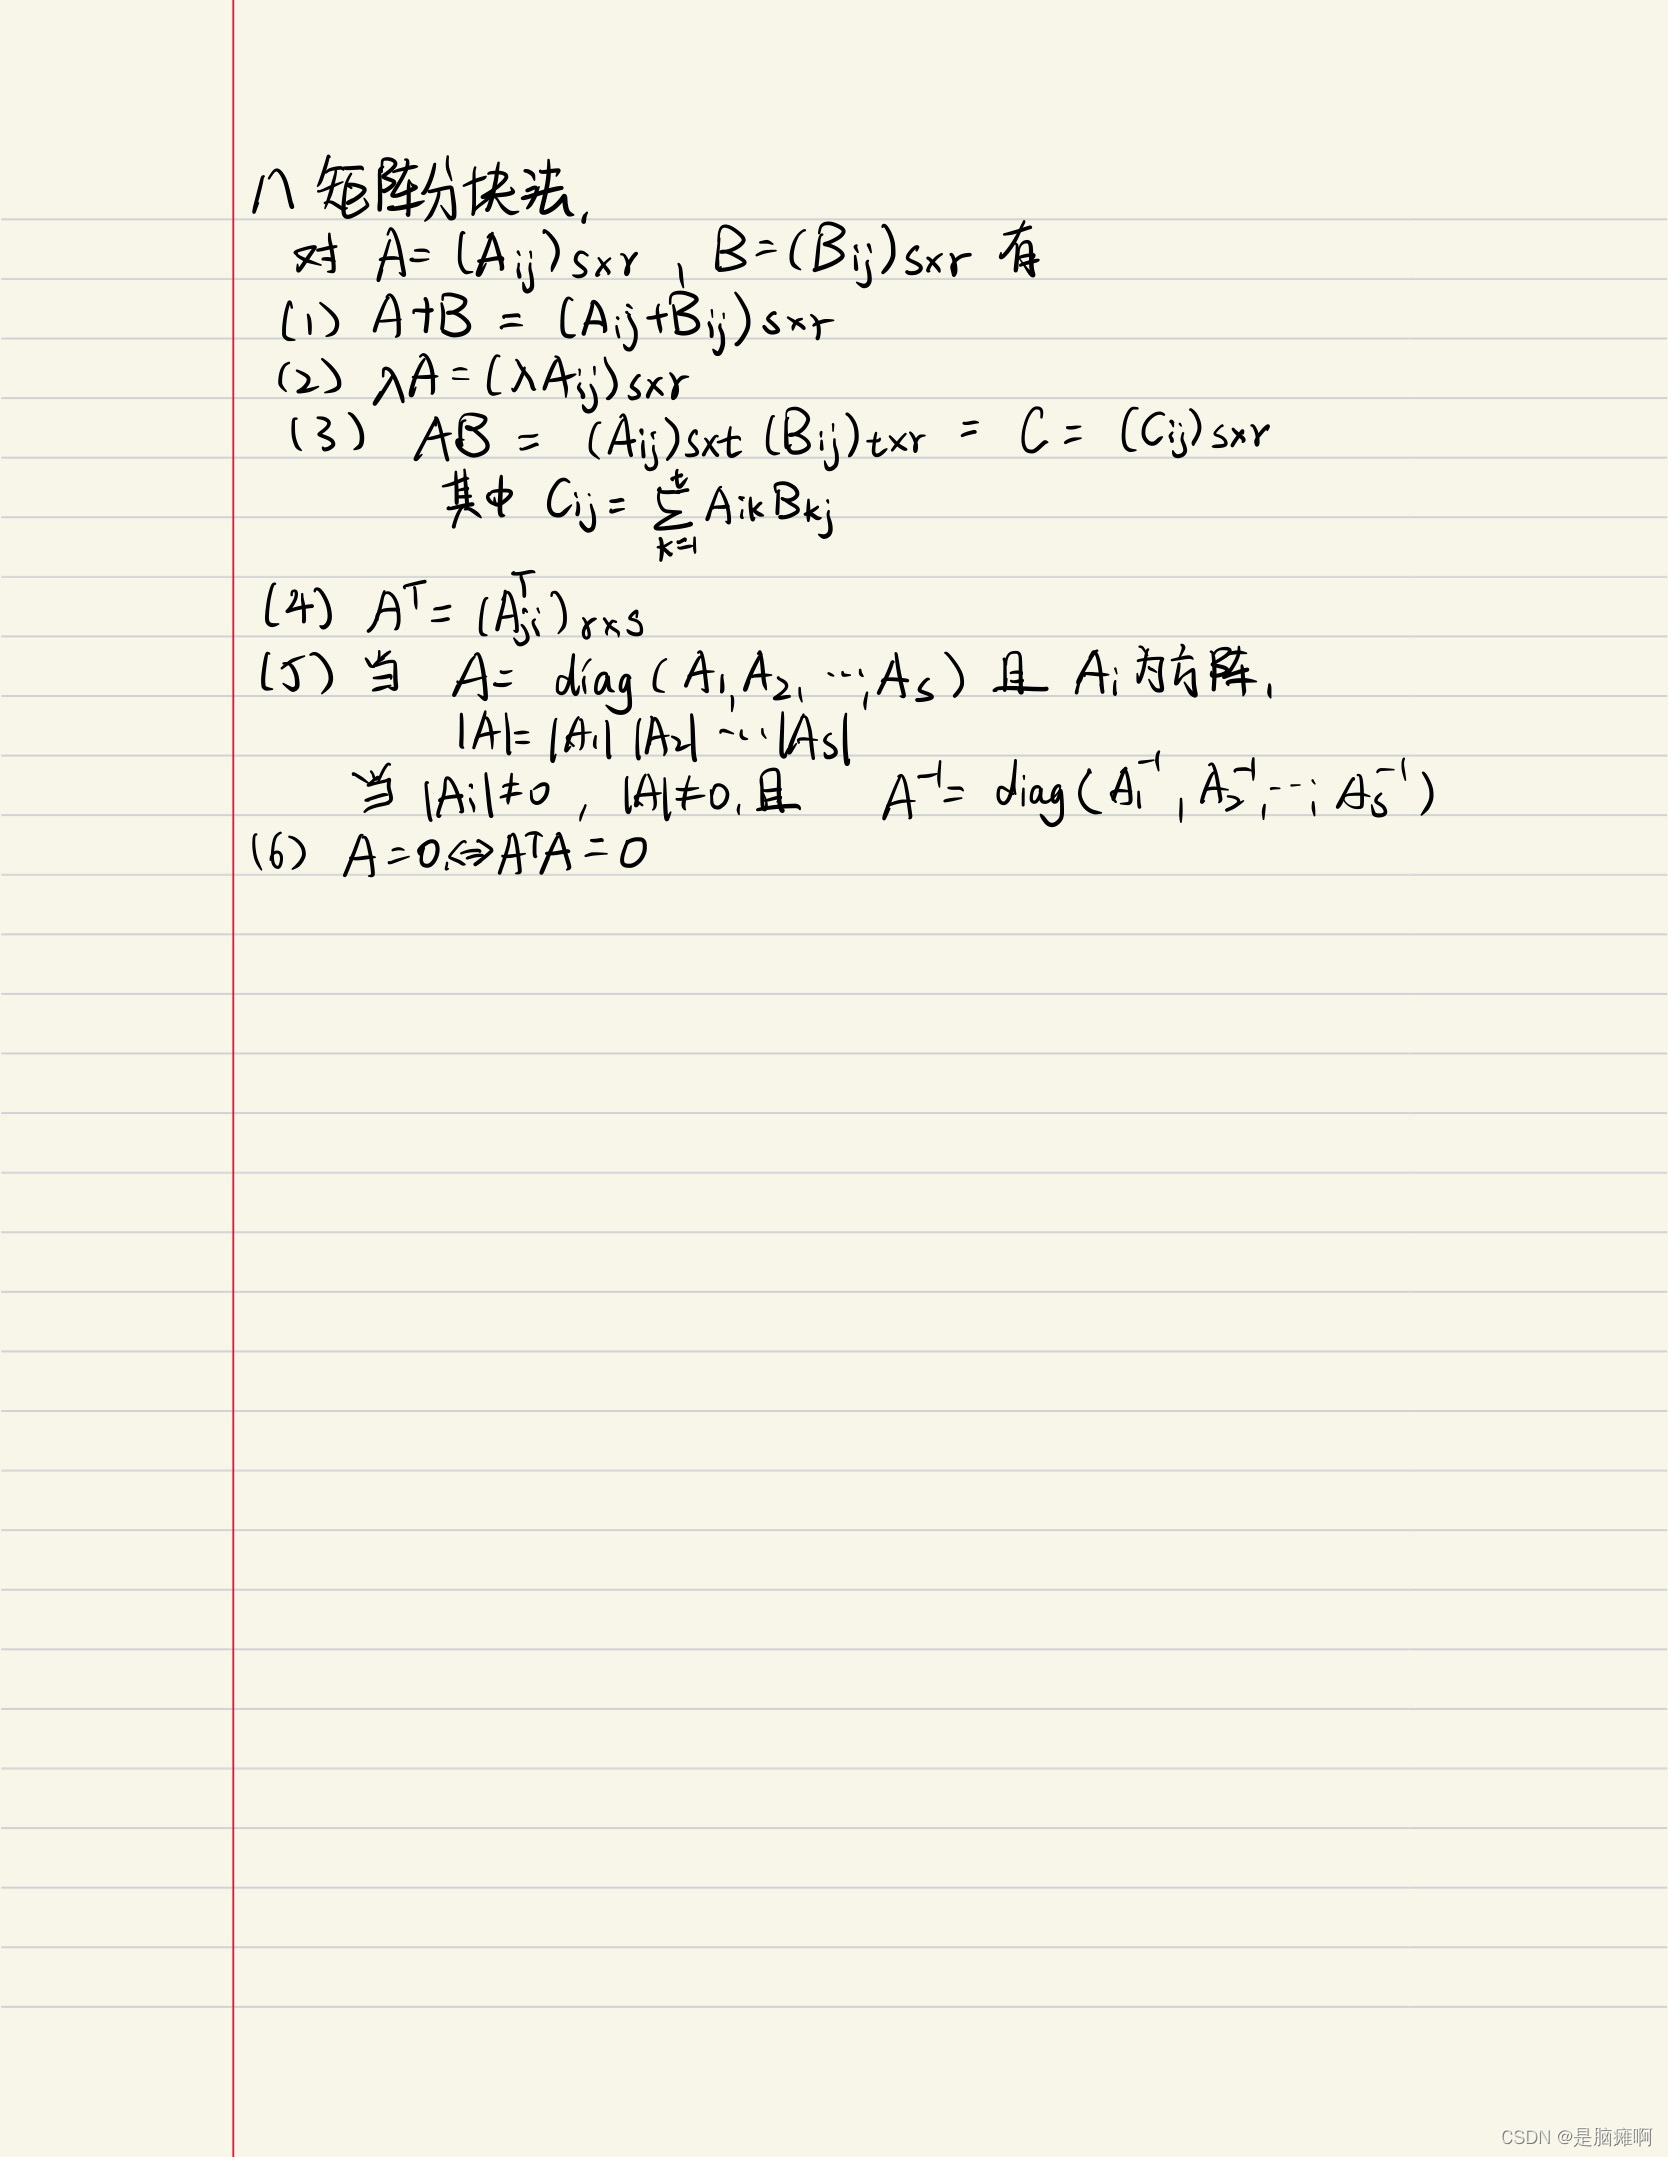 八 矩阵分块法,
对 A=(A_{ij})_{s×r}, B=(B_{ij})_{s×r} 有
(1) A+B = (A_{ij}+B_{ij})_{s×r}
(2) λA=(λA_{ij})_{s×r}
(3) AB = (A_{ij})_{s×t} (B_{ij})_{t×r} = C = (C_{ij})_{s×r}
其中 C_{ij} = \sum_{k=1}^{t} A_{ik}B_{kj}
(4) A^T = (A_{ji}^T)_{r×s}
(5) 当 A= diag(A_1,A_2,…,A_s) 且 A_i 为方阵,
|A|=|A_1| |A_2| …|A_s|
当 |A_i|≠0, |A|≠0,且 A^{-1}= diag(A_1^{-1}, A_2^{-1},…, A_s^{-1})
(6) A=0,⇔A^TA=0
CSDN @是脑瘫啊